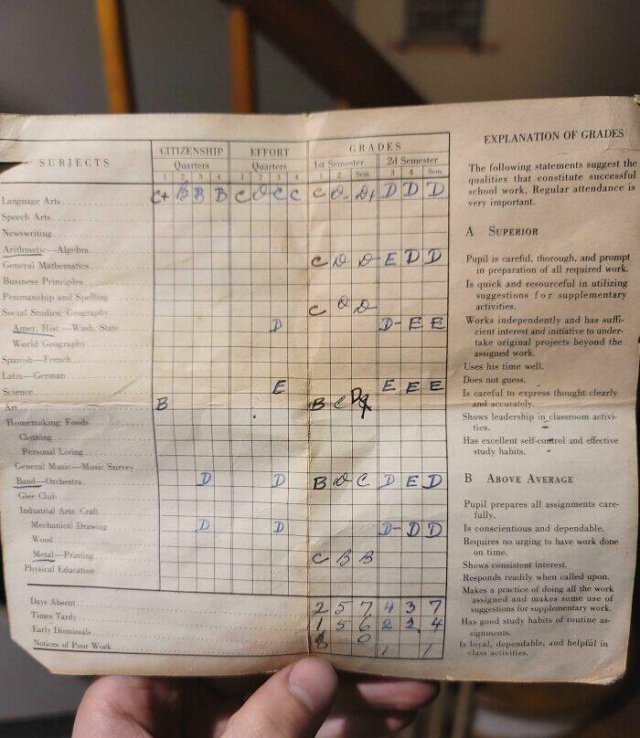 SUBJECTS
CITIZENSHIP
Quarters
1 2 3 4
EFFORT
Quarters
1 2 3 4
GRADES
1st Semester 2d Semester
1 2 Sem. 3 4 Sem.
Language Arts C+ B B B C D C C C D- D+ D D D
Speech Arts
Newswriting
Arithmetic—Algebra
General Mathematics C D D E D D
Business Principles
Penmanship and Spelling
Social Studies: Geography C D D
Amer. Hist.—Wash. State D D- E E
World Geography
Spanish—French
Latin—German
Science E E E E
Art B B C
Homemaking: Foods
Clothing
Personal Living
General Music—Music Survey
Band—Orchestra D D B D C D E D
Glee Club
Industrial Arts: Craft
Mechanical Drawing D D D- D D
Wood
Metal—Printing C B B
Physical Education
Days Absent 2 5 7 4 3 7
Times Tardy 1 5 6 2 2 4
Early Dismissals 0
Notices of Poor Work 1 1
EXPLANATION OF GRADES
The following statements suggest the
qualities that constitute successful
school work. Regular attendance is
very important.
A SUPERIOR
Pupil is careful, thorough, and prompt
in preparation of all required work.
Is quick and resourceful in utilizing
suggestions for supplementary
activities.
Works independently and has suffi-
cient interest and initiative to under-
take original projects beyond the
assigned work.
Uses his time well.
Does not guess.
Is careful to express thought clearly
and accurately.
Shows leadership in classroom activi-
ties.
Has excellent self-control and effective
study habits.
B ABOVE AVERAGE
Pupil prepares all assignments care-
fully.
Is conscientious and dependable.
Requires no urging to have work done
on time.
Shows consistent interest.
Responds readily when called upon.
Makes a practice of doing all the work
assigned and makes some use of
suggestions for supplementary work.
Has good study habits of routine as-
signments.
Is loyal, dependable, and helpful in
class activities.